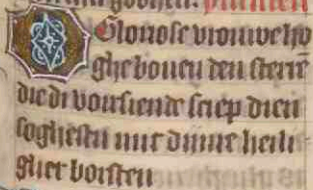 Gloriose vrouwe ho
ghe boven den sterrē
die di voursiende sciep dien
soghestu mit dinre heili
gher borsten